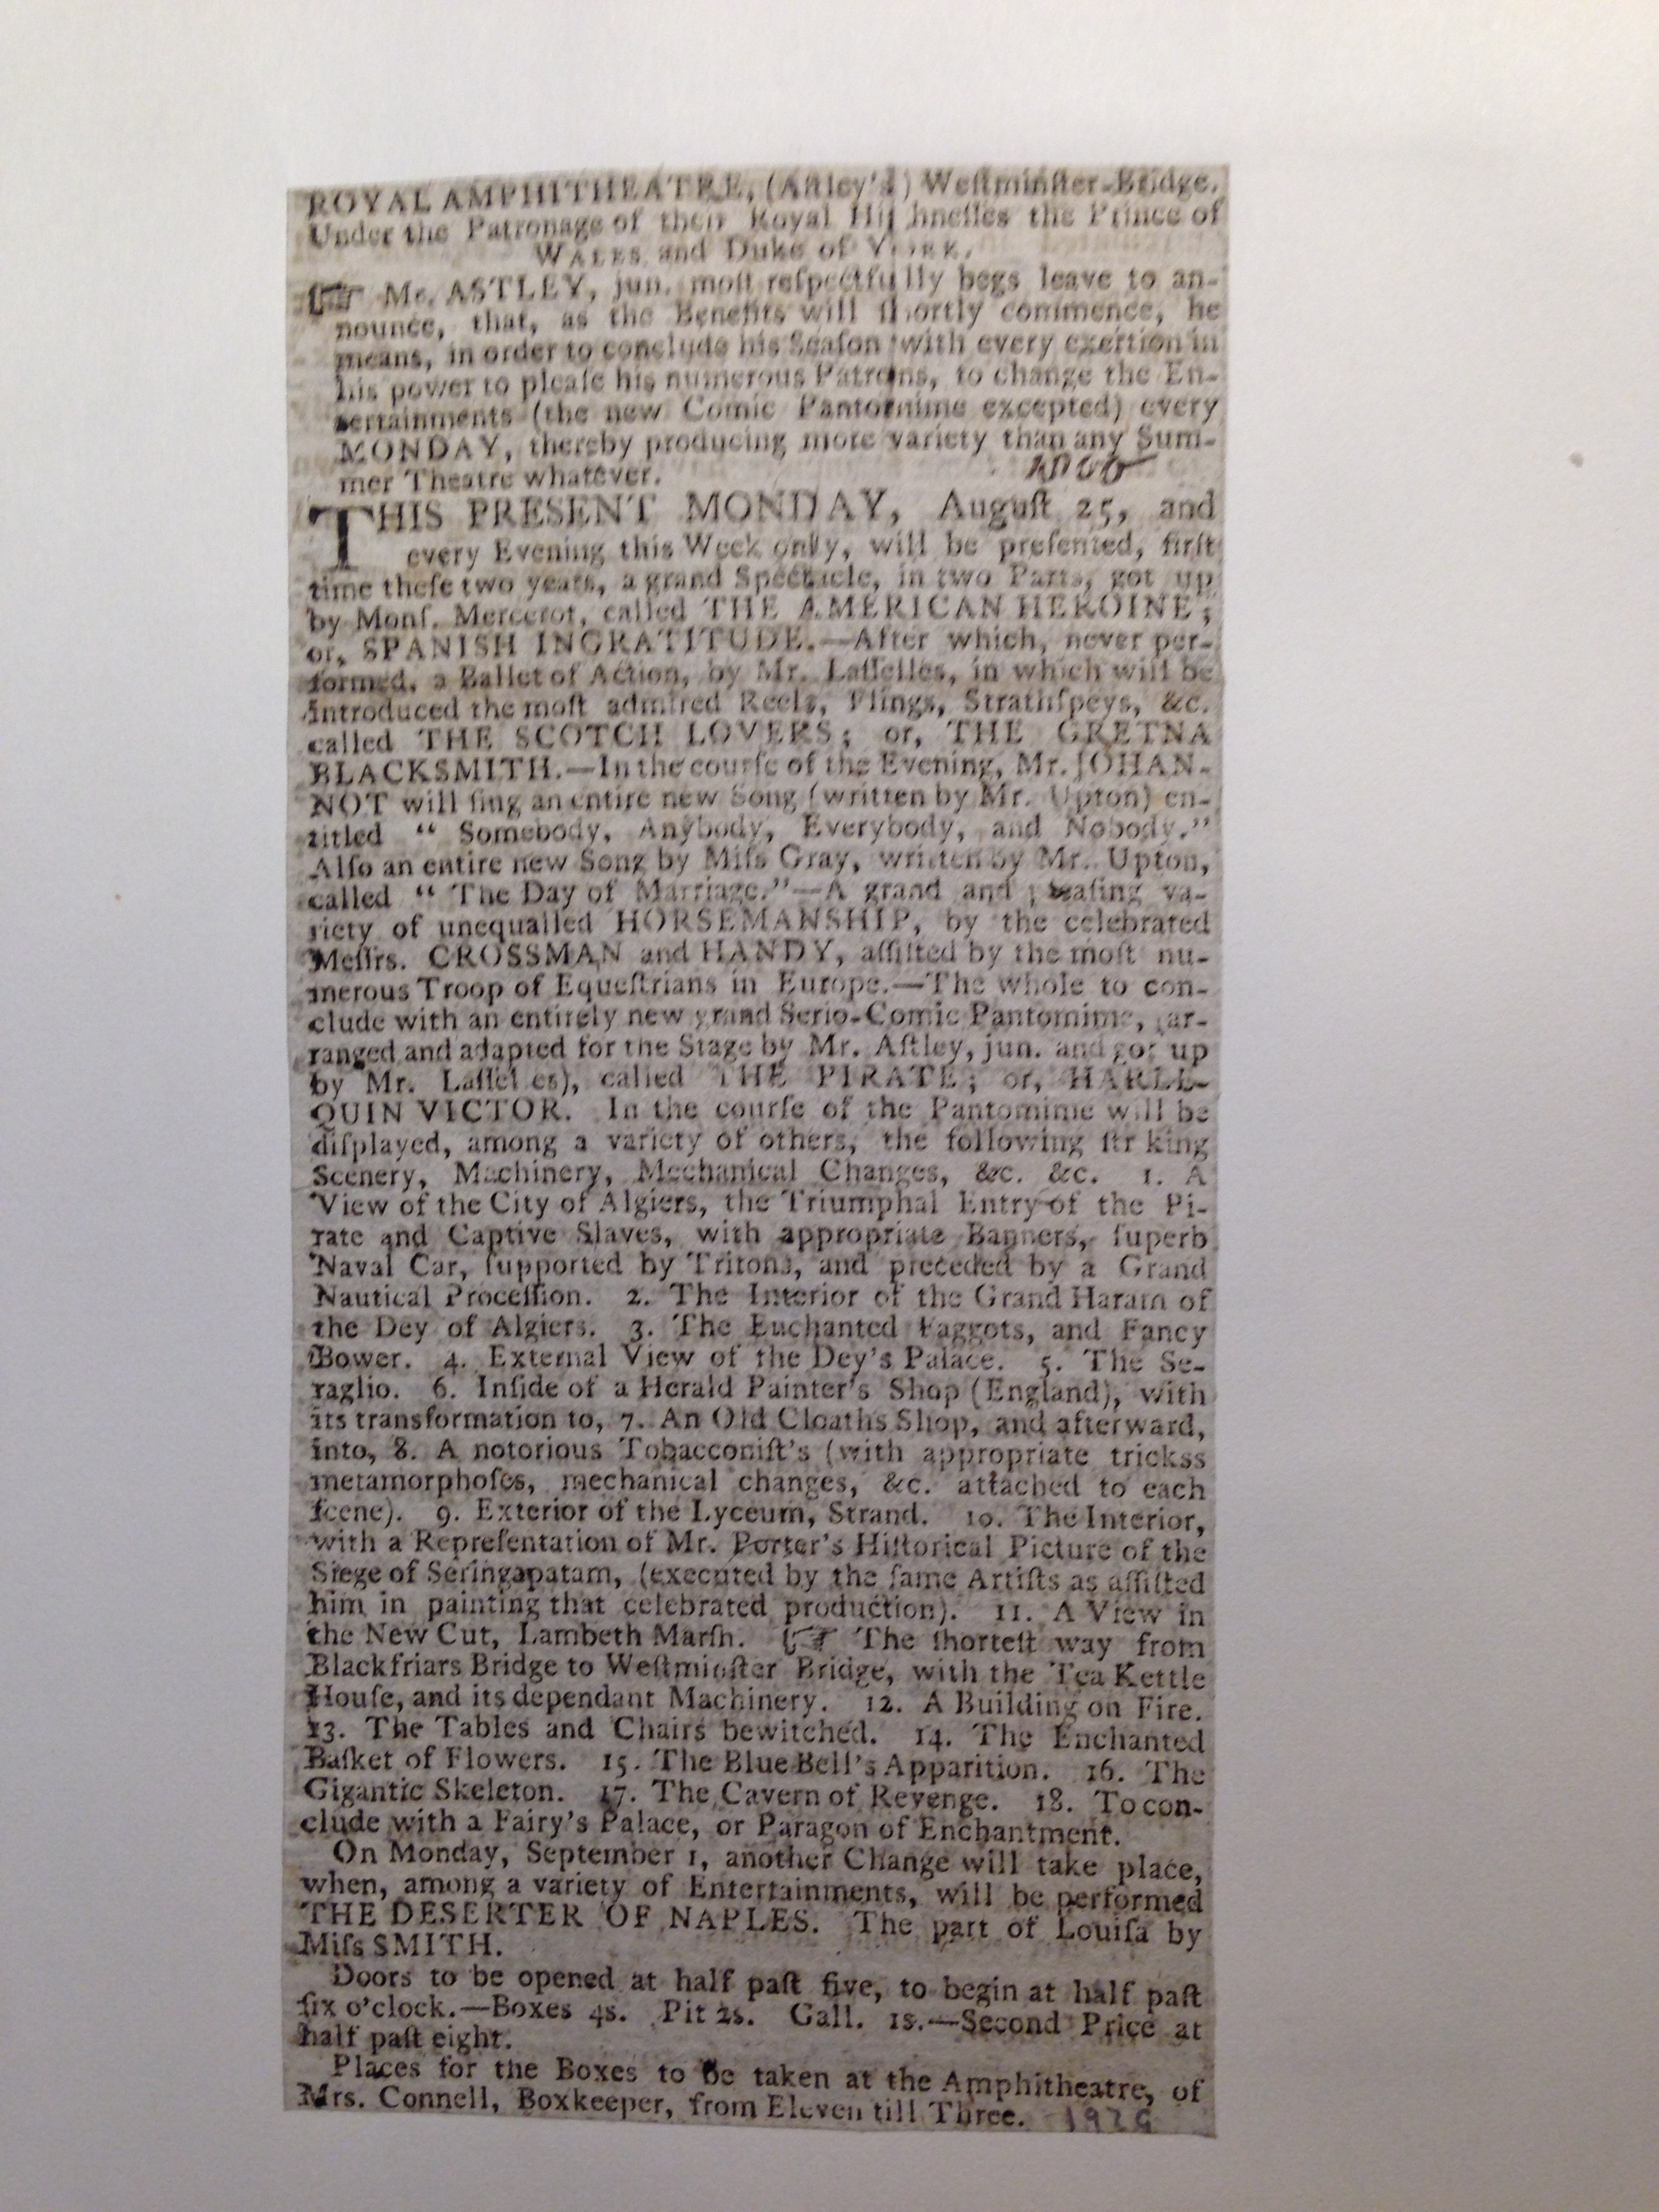 ROYAL AMPHITHEATRE, (Aſtley's) Weſtminſter-Bridge.
Under the Patronage of their Royal Highneſſes the Prince of
WALES and Duke of YORK.
☞ Mr. ASTLEY, jun. moſt reſpectfully begs leave to an-
nounce, that, as the Benefits will ſhortly commence, he
means, in order to conclude his Seaſon with every exertion in
his power to pleaſe his numerous Patrons, to change the En-
tertainments (the new Comic Pantomime excepted) every
MONDAY, thereby producing more variety than any Sum-
mer Theatre whatever.
1800
THIS PRESENT MONDAY, Auguſt 25, and
every Evening this Week only, will be preſented, firſt
time theſe two years, a grand Spectacle, in two Parts, got up
by Monſ. Mercerot, called THE AMERICAN HEROINE;
or, SPANISH INGRATITUDE.—After which, never per-
formed, a Ballet of Action, by Mr. Laſſelles, in which will be
introduced the moſt admired Reels, Flings, Strathſpeys, &c.
called THE SCOTCH LOVERS; or, THE GRETNA
BLACKSMITH.—In the courſe of the Evening, Mr. JOHAN-
NOT will ſing an entire new Song (written by Mr. Upton) en-
titled “ Somebody, Anybody, Everybody, and Nobody.”
Alſo an entire new Song by Miſs Gray, written by Mr. Upton,
called “ The Day of Marriage.”—A grand and pleaſing va-
riety of unequalled HORSEMANSHIP, by the celebrated
Meſſrs. CROSSMAN and HANDY, aſſiſted by the moſt nu-
merous Troop of Equeſtrians in Europe.—The whole to con-
clude with an entirely new grand Serio-Comic Pantomime, (ar-
ranged and adapted for the Stage by Mr. Aſtley, jun. and got up
by Mr. Laſſel es), called THE PIRATE; or, HARLE-
QUIN VICTOR. In the courſe of the Pantomime will be
diſplayed, among a variety of others, the following ſtr king
Scenery, Machinery, Mechanical Changes, &c. &c. 1. A
View of the City of Algiers, the Triumphal Entry of the Pi-
rate and Captive Slaves, with appropriate Banners, ſuperb
Naval Car, ſupported by Tritons, and preceded by a Grand
Nautical Proceſſion. 2. The Interior of the Grand Haram of
the Dey of Algiers. 3. The Enchanted Faggots, and Fancy
Bower. 4. External View of the Dey's Palace. 5. The Se-
raglio. 6. Inſide of a Herald Painter's Shop (England), with
its transformation to, 7. An Old Cloaths Shop, and afterward,
into, 8. A notorious Tobacconiſt's (with appropriate trickss
metamorphoſes, mechanical changes, &c. attached to each
ſcene). 9. Exterior of the Lyceum, Strand. 10. The Interior,
with a Repreſentation of Mr. Porter's Hiſtorical Picture of the
Siege of Seringapatam, (executed by the ſame Artiſts as aſſiſted
him in painting that celebrated production). 11. A View in
the New Cut, Lambeth Marſh. ☞ The ſhorteſt way from
Blackfriars Bridge to Weſtminſter Bridge, with the Tea Kettle
Houſe, and its dependant Machinery. 12. A Building on Fire.
13. The Tables and Chairs bewitched. 14. The Enchanted
Baſket of Flowers. 15. The Blue Bell's Apparition. 16. The
Gigantic Skeleton. 17. The Cavern of Revenge. 18. To con-
clude with a Fairy's Palace, or Paragon of Enchantment.
On Monday, September 1, another Change will take place,
when, among a variety of Entertainments, will be performed
THE DESERTER OF NAPLES. The part of Louiſa by
Miſs SMITH.
Doors to be opened at half paſt five, to begin at half paſt
ſix o'clock.—Boxes 4s. Pit 2s. Gall. 1s.—Second Price at
half paſt eight.
Places for the Boxes to be taken at the Amphitheatre, of
Mrs. Connell, Boxkeeper, from Eleven till Three.